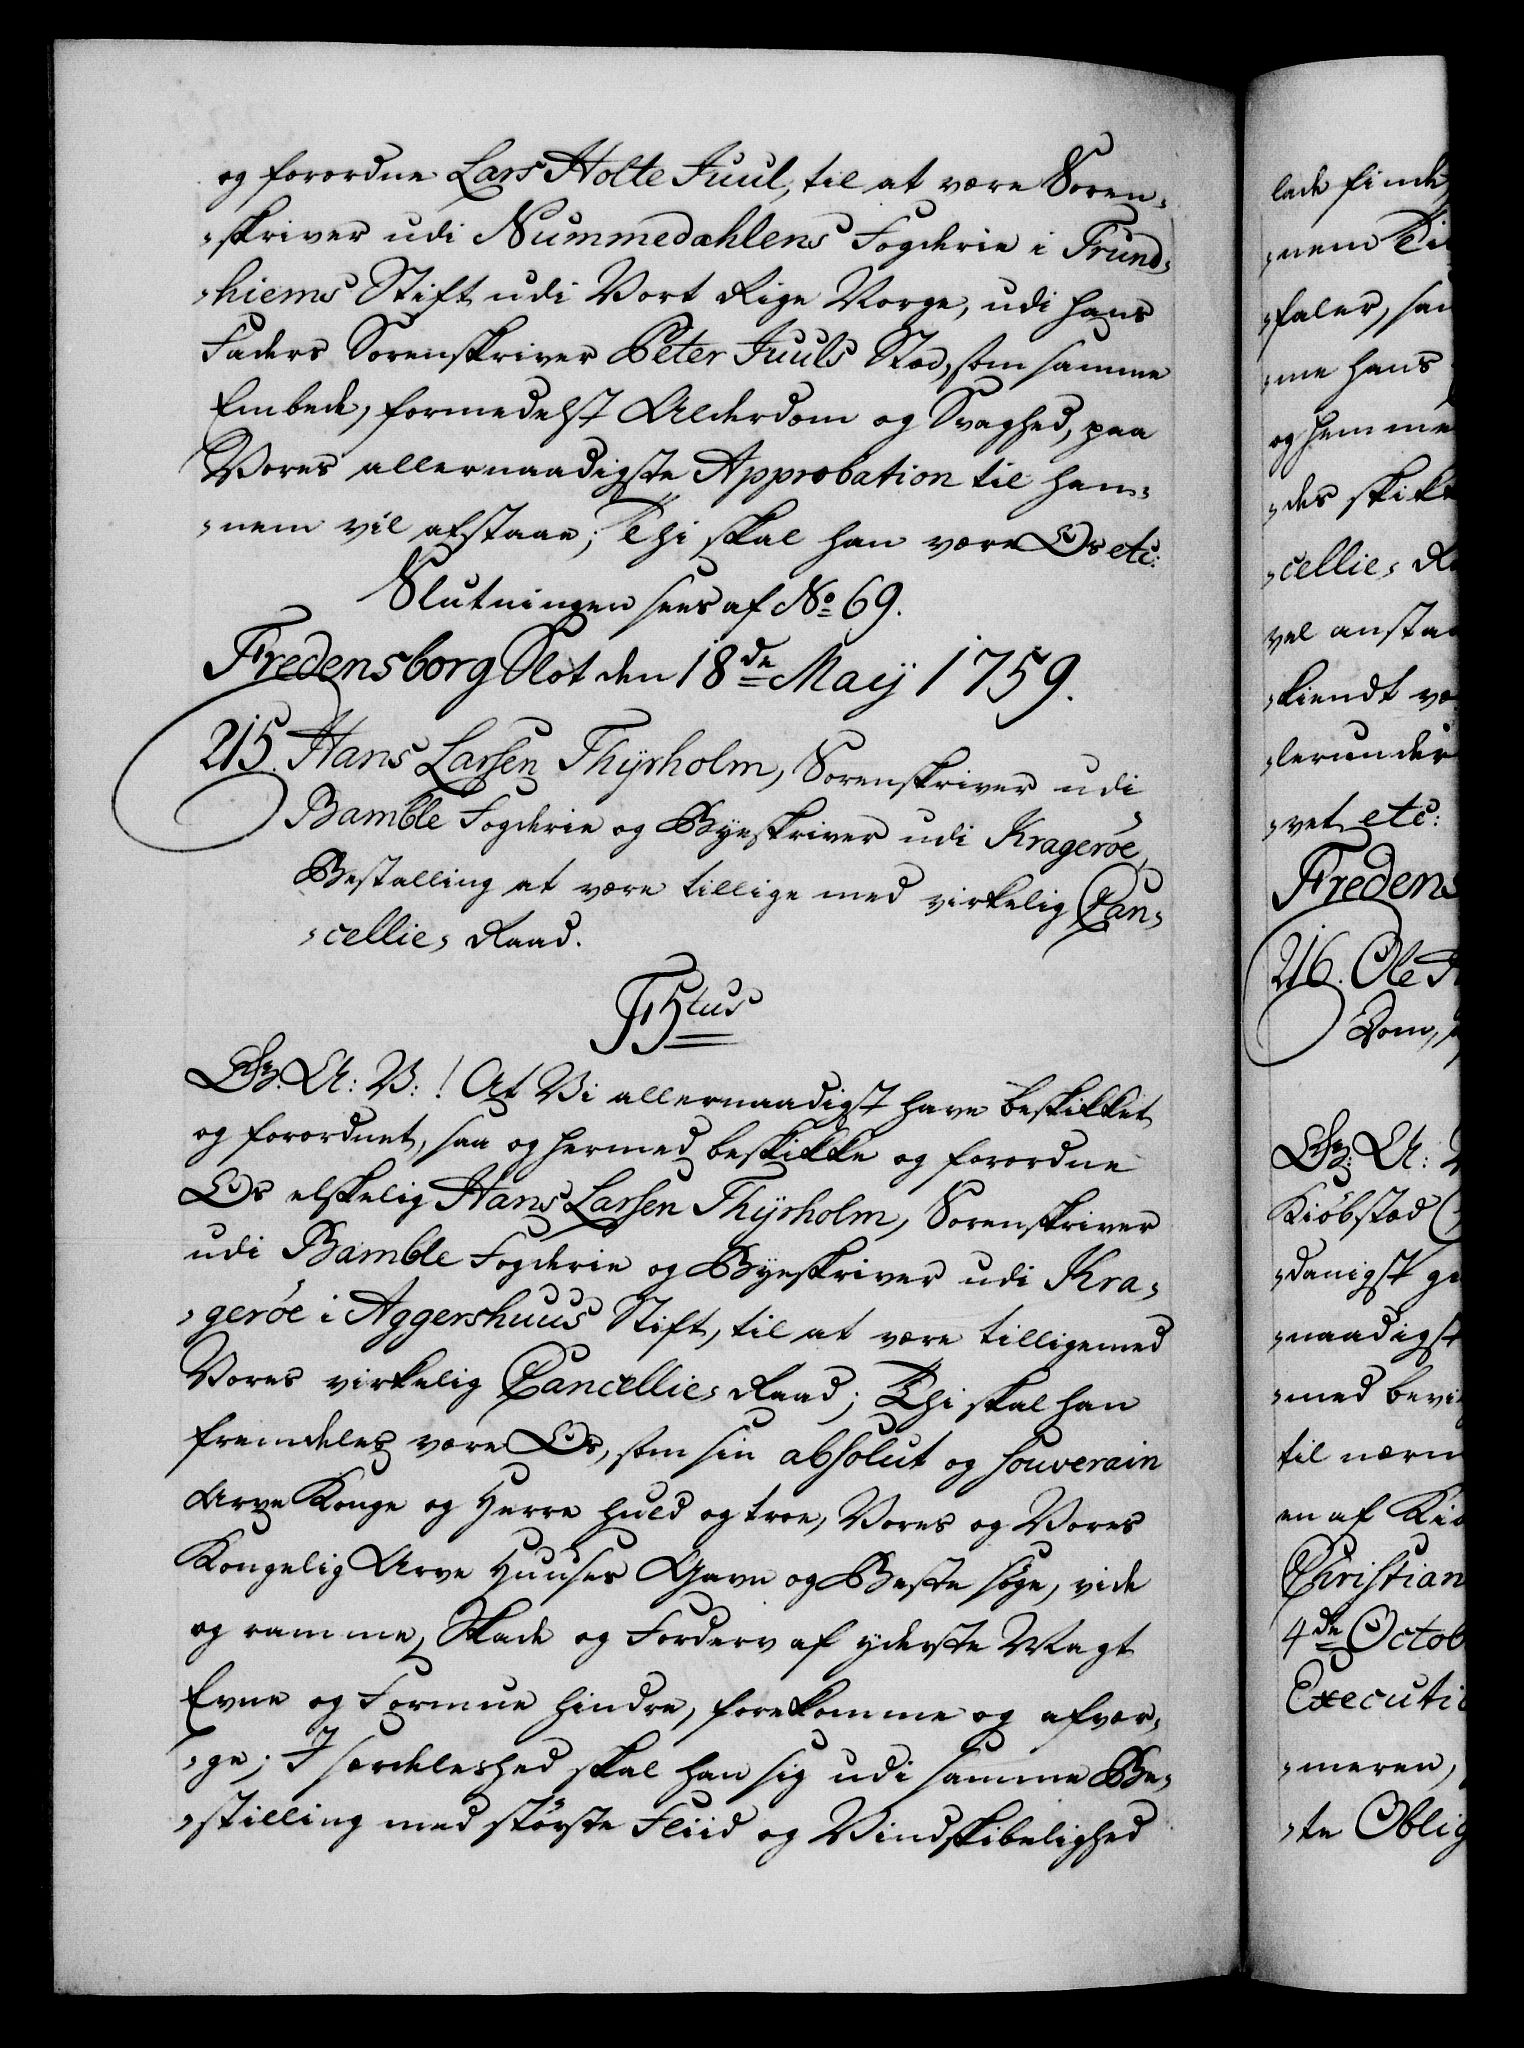 og forordne Lars Holte Juul, til at være Soren-
-skriver udi Nummedahlens Fogderie i Trund-
-hiems Stift udi Vort Rige Norge, udi hans
Faders Sorenskriver Peter Juuls Stæd, som samme
Embede, formedelst Alderdom og Svaghed, paa
Vores allernaadigste Approbation til han-
-nem vil afstaae; Thi skal han være Os etc:
Slutningen sees af No 69.
Fredensborg Slot den 18de Maij 1759.
215. Hans Larsen Thyrholm, Sorenskriver udi
Bamble Fogderie og Byeskriver udi Krageröe,
Bestalling at være tillige med virkelig Can-
-cellie-Raad.
F5tus
Gr: A: V: ! At Vi allernaadigst have beskikket
og forordnet, saa og hermed beskikke og forordne
Os elskelig Hans Larsen Thyrholm, Sorenskriver
udi Bamble Fogderie og Byeskriver udi Kra-
-geröe i Aggershuus Stift, til at være tilligemed
Vores virkelig Cancellie-Raad; Thi skal han
fremdeles være Os, som sin absolut og souverain
Arve Konge og Herre huld og troe, Vores og Vores
Kongelig Arve Huuses Gavn og Beste söge, vide
og ramme, Skade og Forderv af yderste Magt
Evne og Formue hindre, forekomme og afvær-
-ge; I særdeleshed skal han sig udi samme Be-
-stilling med störste Fliid og Vindskibelighed
lade finde
-nem
-faler,
-me hans
og hemme
-des
-cellie-
vel
-kiendt
-lerunder
-vet etc:
Fredens
216. Ole
Dom,
Gr: A:
Kiöbstæd
-danigst
-naadigst
-med
til
en af
Christian
4de Octob
Executi
-meren,
-te Oblig